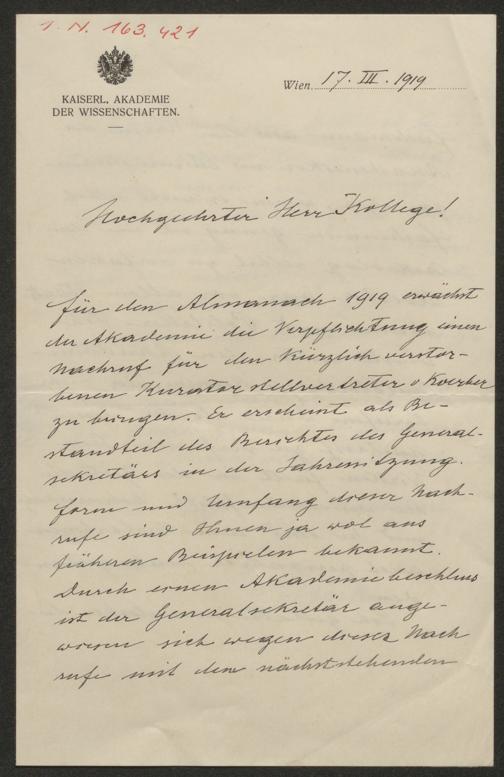 I. N. 163.421
KAISERL. AKADEMIE
DER WISSENSCHAFTEN.
Wien, 17. III. 1919
Hochgeehrter Herr Kollege!
Für den Almanach 1919 erwächst
der Akademie die Verpflichtung einen
Nachruf für den kürzlich verstor-
benen Kuratorstellvertreter v Koerber
zu bringen. Er erscheint als Be-
standteil des Berichtes des General-
sekretärs in der Jahressitzung.
Form und Umfang dieser Nach-
rufe sind Ihnen ja wol aus
früheren Beispielen bekannt.
Durch einen Akademiebeschluss
ist der Generalsekretär ange-
wiesen sich wegen dieser Nach
rufe mit dem nächststehenden